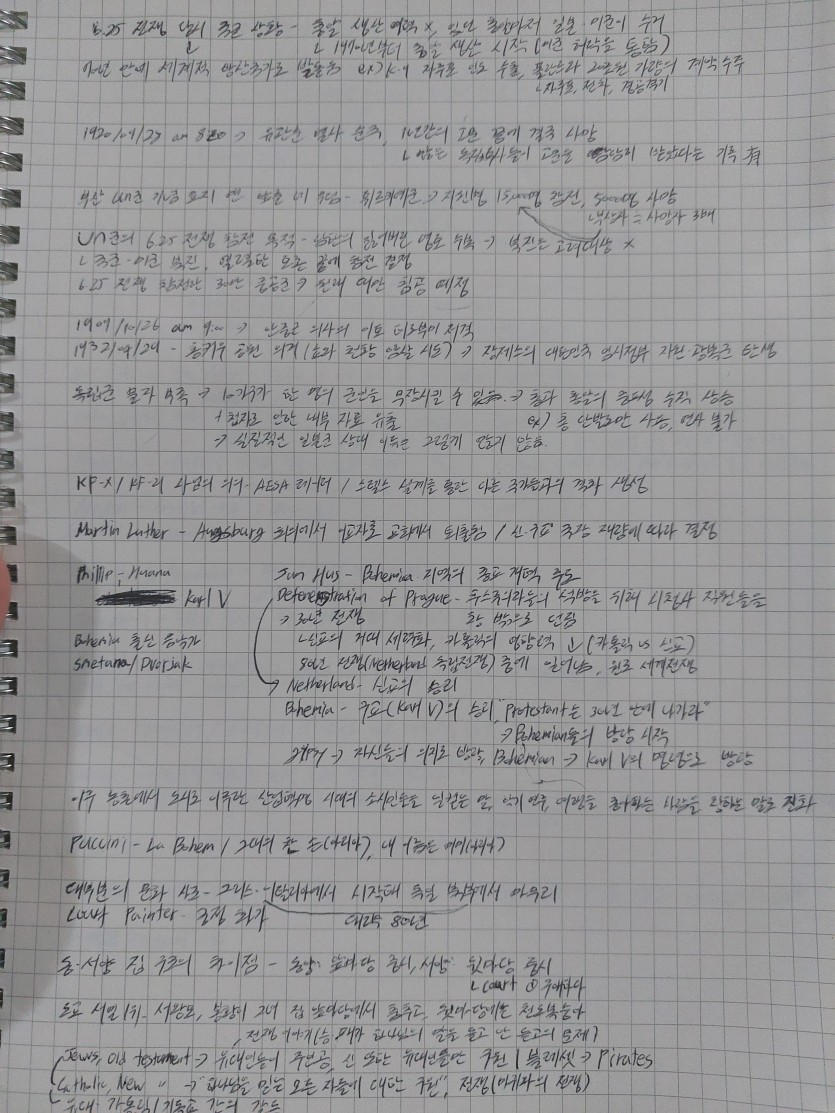 6.25 전쟁 당시 한국 상황 - 총알 생산 여력 x, 있던 총알마저 일본·미군이 수거
ㄴ 1970년부터 총알 생산 시작 (미군 허락을 통함)
70년 만에 세계적 방산국가로 발돋움 ex) K-9 자주포 인도 수출, 폴란드와 20조원 가량의 계약 수주
ㄴ자주포, 전차, 경공격기
1920/09/28 am 8:20 → 유관순 열사 순국, 1년간의 고문 끝에 결국 사망
ㄴ 많은 독립투사들이 고문을 받았다는 기록 有
부산 UN군 기념 묘지 - 튀르키예군 → 지원병 15000명 참전, 5000명 사망
ㄴ부상자 = 사망자 3배
UN군의 6.25 전쟁 참전 목적 - 남한의 잃어버린 영토 수복 → 북진은 고려대상 x
ㄴ 국군·미군 북진, 모은 끝에 참전 결정
6.25 전쟁 참전한 30만 중공군 → 원래 대만 침공 예정
1909/10/26 am 9:00 → 안중근 의사의 이토 히로부미 저격
1932/04/29 - 홍커우 공원 의거 (암살 시도) → 장제스의 대한민국 임시정부 지원·광복군 탄생
독립군 물자 부족 → 10가구가 한 명의 군인을 무장시킬 수 있음. → 총과 총알의 중요성 수직 상승
+ 첩자로 인한 내부 자료 유출 ex) 총 단발로만 사용, 연사 불가
→ 실질적인 일본군 상대 이득은 그렇게 많지 않음.
KF-X / KF-21 사업의 의의 - AESA 레이더 / 스텔스 설계를 통한 다른 국가들과의 격차 생성
Martin Luther - Augsburg 회의에서 이교자로 교회에서 퇴출됨 / 신·구교 국왕 재량에 따라 결정
Phillip, Juana Jan Hus - Bohemica 지역의 종교 개혁 주도
Karl V Defenestration of Prague - 후스주의자들의 석방을 위해 시청사 직원들을
→ 30년 전쟁 창 밖으로 던짐
Bohemia 출신 음악가 ㄴ신교의 거대 세력화, 카톨릭의 영향력 ↓ (카톨릭 vs 신교)
Smetana / Dvorjak 80년 전쟁 (Netherland 독립전쟁) 중에 일어남, 원조 세계전쟁
→ Netherland - 신교의 승리
Bohemia - 구교 (Karl V)의 승리, "Protestant는 30년 안에 나가라"
→ Bohemian들의 방랑 시작
Gypsy → 자신들의 의지로 방랑, Bohemian → Karl V의 명령으로 방랑
이후 농촌에서 도시로 이주한 산업혁명 시대의 소시민들을 일컫는 말, 악기 연주, 여행을 좋아하는 사람을 칭하는 말로 진화
Puccini - La Bohem / 그대의 찬 손 (아리아), 내 이름은 미미 (아리아)
대부분의 문화 사조 - 그리스·이탈리아에서 시작돼 독일 에서 마무리
Court Painter - 궁정 화가 대략 80년
동·서양 집 구조의 차이점 - 동양: 앞마당 중시, 서양: 뒷마당 중시
ㄴ court ⓥ 구애하다
도교 서열 1위 - 서왕모, 봉황이 그녀 집 앞마당에서 춤추고, 뒷마당에는 천도복숭아
Jews, Old testament → 유대인들이 주인공, 신 또한 유대인들만 구원 / 블레셋 → Pirates
Catholic, New 〃 → "하나님을 믿는 모든 자들에 대한 구원", 전쟁 (마귀와의 전쟁)
유대·가톨릭 / 기독교 간의 갈등